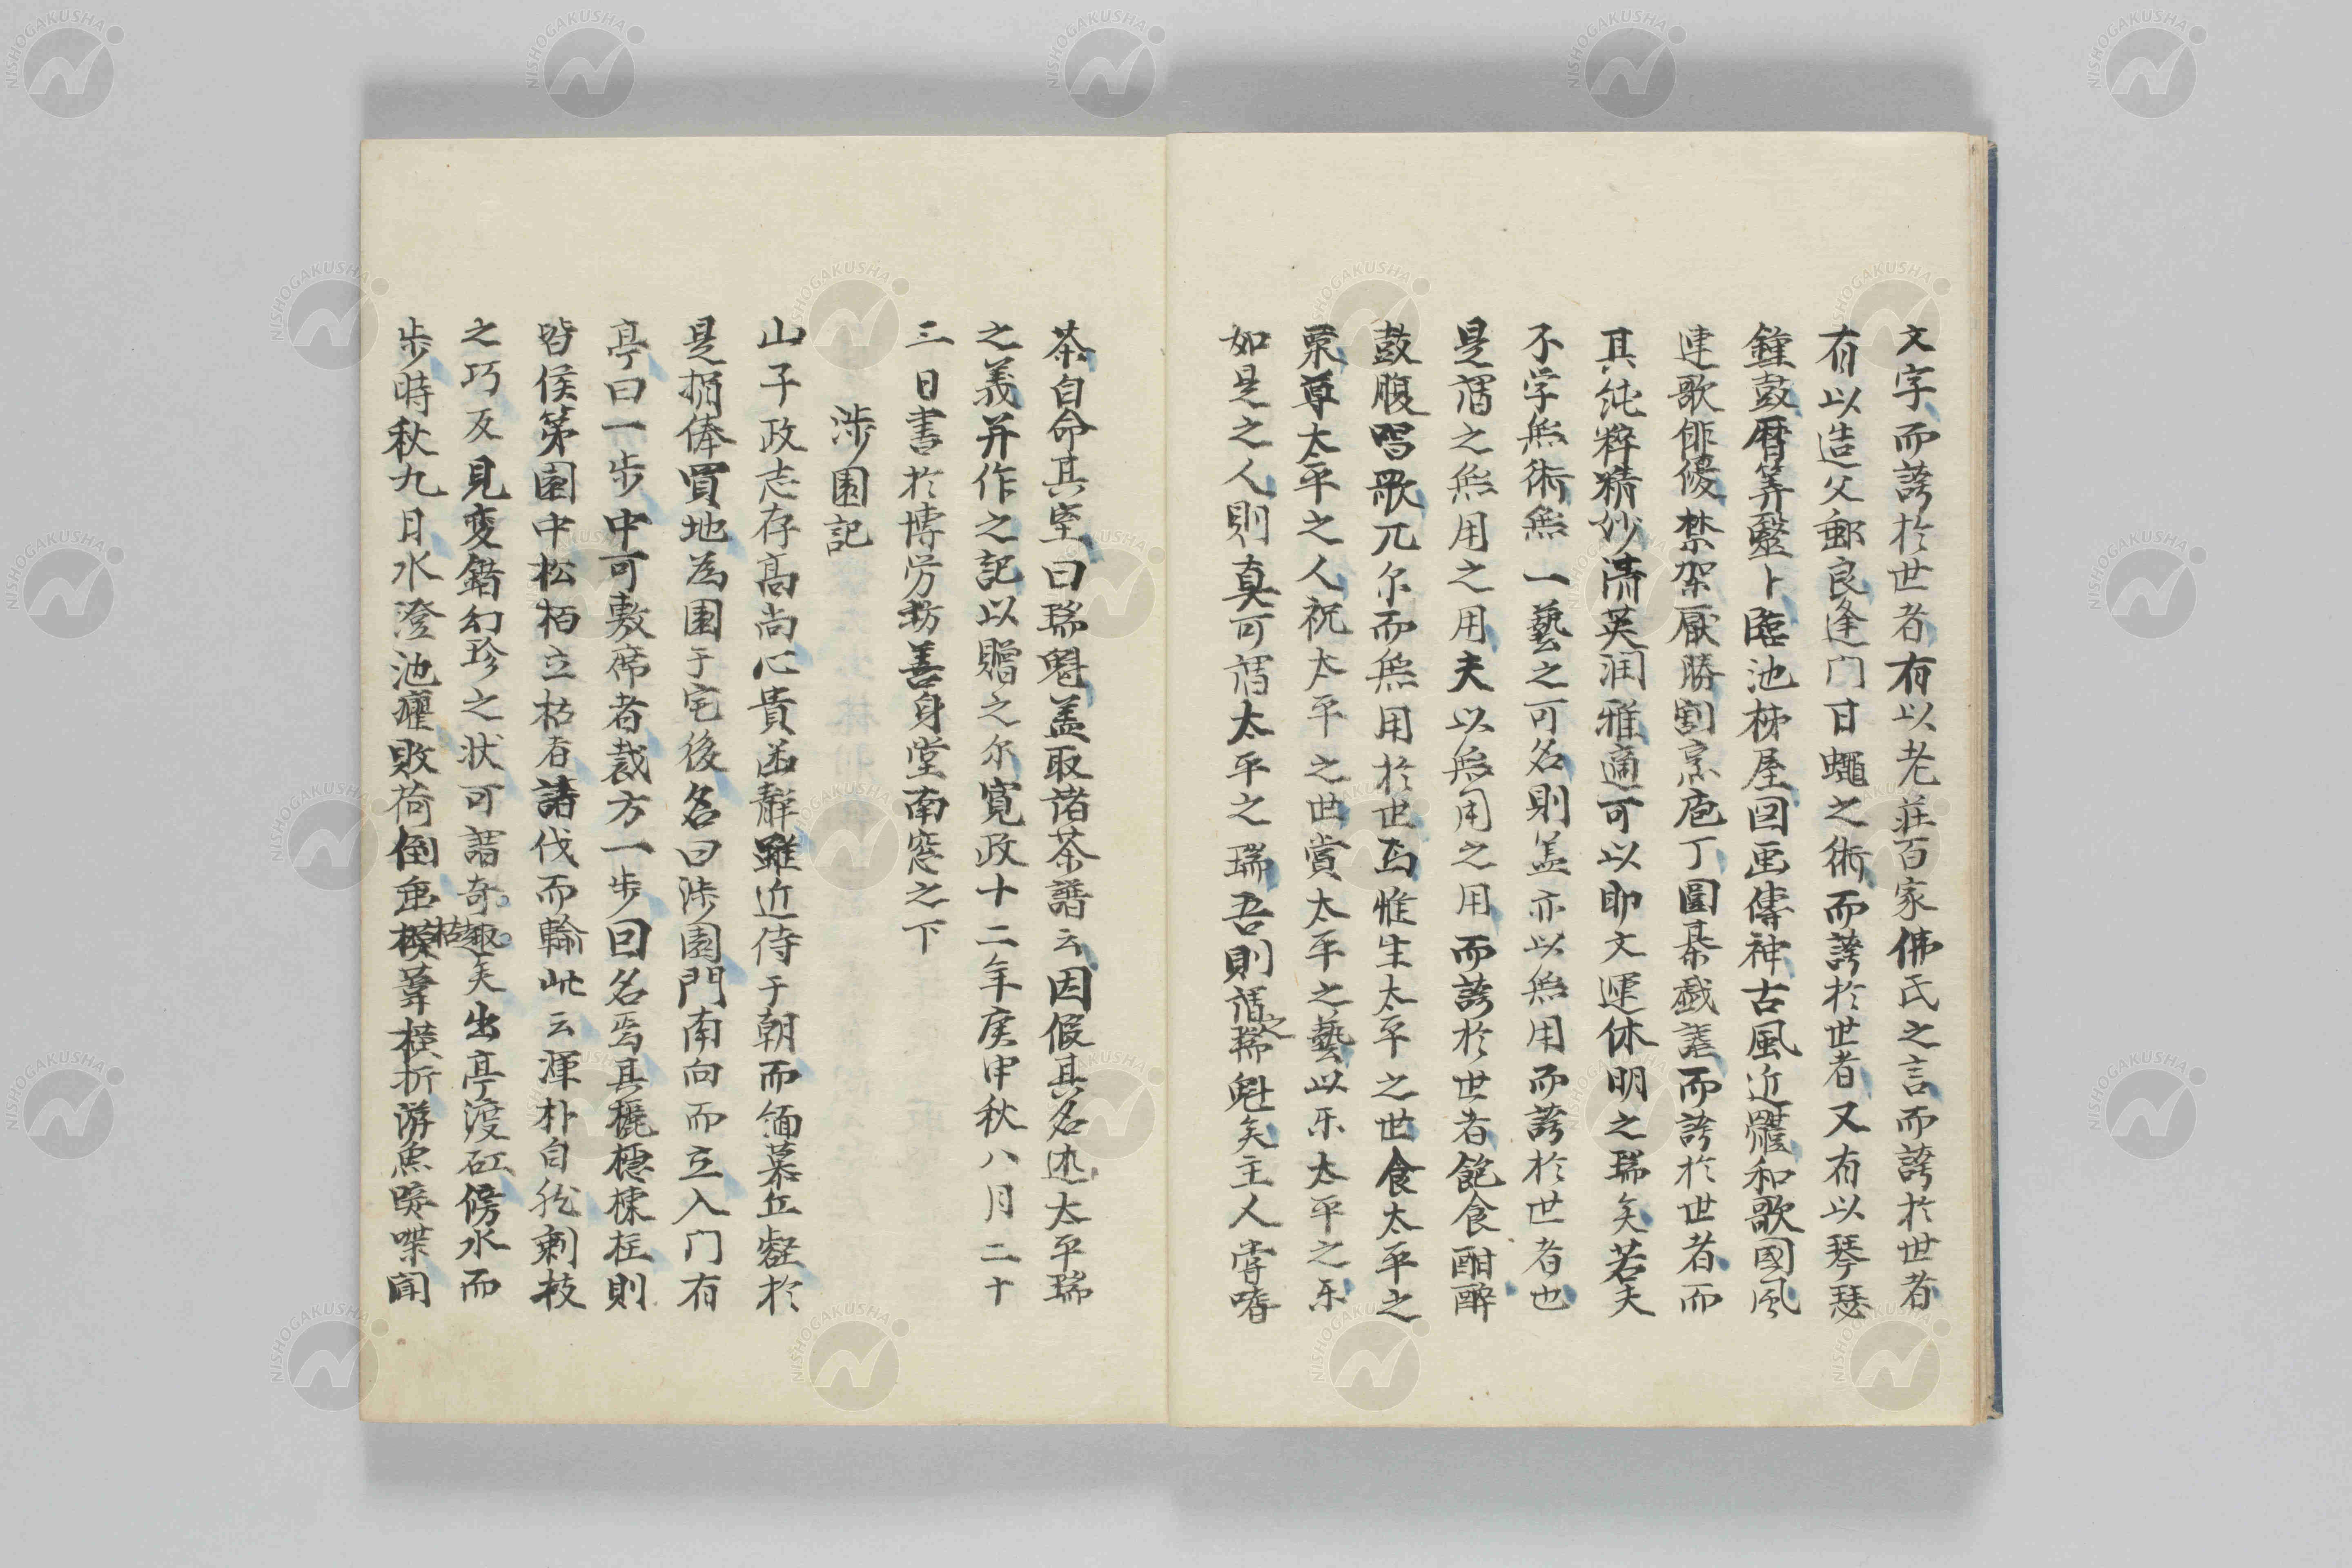 文字而誇於世者有以老莊百家佛氏之言而誇於世者
有以造父郵良逢门甘蠅之術而誇於世者又有以琴瑟
鐘鼓曆筭毉卜臨池梼屋図画傳神古風近體和歌國風
連歌俳優禁架厭勝割烹庖丁圍棊戲謔而誇於世者而
其純粹精妙清英润雅適可以助文運休明之瑞矣若夫
不学無術無一藝之可名則盖亦以無用而誇於世者也
是謂之無用之用夫以無用之用而誇於世者飽食酣醉
鼓腹唱歌兀尔而無用於世焉惟生太平之世食太平之
粟尊太平之人祝太平之世賞太平之藝以乐太平之乐
如是之人則真可謂太平之瑞吾則謂之瑞魁矣主人嘗嗜
茶自命其室曰瑞魁盖取诸茶譜云因假其名述太平瑞
之義并作之記以贈之尔寛政十二年庚申秋八月二十
三日書於博労坊善身堂南窓之下
涉園記
山子政志存高尚心貴函觧雖近侍于朝而緬慕丘壑於
是捐俸買地為園于宅後名曰涉園門南向而立入门有
亭曰一步中可敷席者裁方一步曰名焉其榱穩楝枉則
皆侯第園中松栢立枯者請伐而輸此云渾朴自然剩枝
之巧反見变錯幻珍之状可謂奇趣矣出亭渡矼傍水而
步時秋九日水澄池癯敗荷倒垂枯葦横折游魚唼喋闻
NISHOGAKUSHA